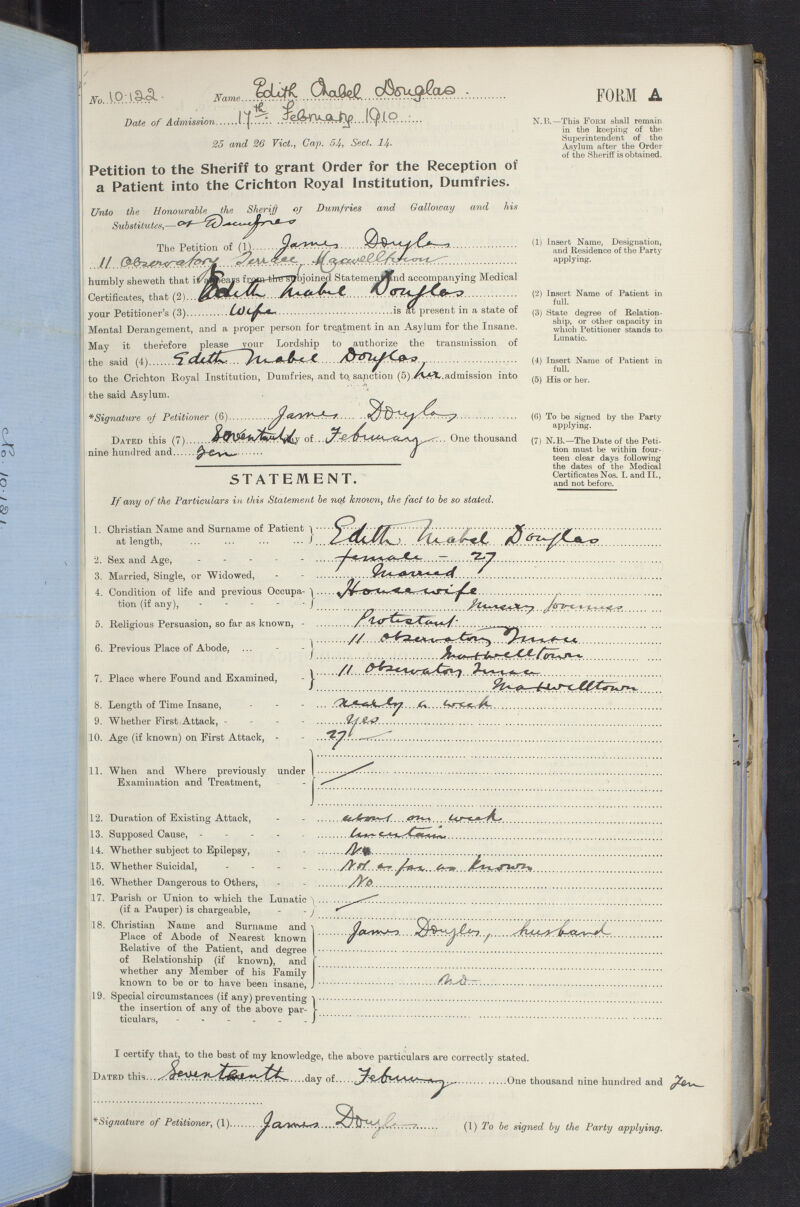 No. 10.122. Name Edith Mabel Douglas.
FORM A
Date of Admission 17th February 1910.
25 and 26 Vict., Cap. 54, Sect. 14.
N.B.—This Form shall remain
in the keeping of the
Superintendent of the
Asylum after the Order
of the Sheriff is obtained.
Petition to the Sheriff to grant Order for the Reception of
a Patient into the Crichton Royal Institution, Dumfries.
Unto the Honourable the Sheriff of Dumfries and Galloway and his
Substitutes,— at Dumfries
The Petition of (1) James Douglas
11 Observatory Terrace, Maxwelltown
(1) Insert Name, Designation,
and Residence of the Party
applying.
humbly sheweth that it appears from the subjoined Statement and accompanying Medical
Certificates, that (2) Edith Mabel Douglas
(2) Insert Name of Patient in
full.
your Petitioner's (3) Wife is at present in a state of
(3) State degree of Relation-
ship, or other capacity in
which Petitioner stands to
Lunatic.
Mental Derangement, and a proper person for treatment in an Asylum for the Insane.
May it therefore please your Lordship to authorize the transmission of
the said (4) Edith Mabel Douglas
(4) Insert Name of Patient in
full.
to the Crichton Royal Institution, Dumfries, and to sanction (5) her admission into
(5) His or her.
the said Asylum.
*Signature of Petitioner (6) James Douglas
(6) To be signed by the Party
applying.
Dated this (7) Seventeenth day of February One thousand
nine hundred and Ten
(7) N.B.—The Date of the Peti-
tion must be within four-
teen clear days following
the dates of the Medical
Certificates Nos. I. and II.,
and not before.
STATEMENT.
If any of the Particulars in this Statement be not known, the fact to be so stated.
1. Christian Name and Surname of Patient
at length, ... ... ... ... Edith Mabel Douglas
2. Sex and Age, - - - - - female – 27
3. Married, Single, or Widowed, - - Married
4. Condition of life and previous Occupa- Housewife
tion (if any), - - - - - Nursery Governess
5. Religious Persuasion, so far as known, - Protestant
6. Previous Place of Abode, ... - 11 Observatory Terrace
Maxwelltown
7. Place where Found and Examined, - 11 Observatory Terrace
Maxwelltown
8. Length of Time Insane, - - - nearly a week
9. Whether First Attack, - - - - Yes
10. Age (if known) on First Attack, - - 27
11. When and Where previously under
Examination and Treatment, - -
12. Duration of Existing Attack, - - about one week
13. Supposed Cause, - - - - - Uncertain
14. Whether subject to Epilepsy, - - No
15. Whether Suicidal, - - - - Not as far as known
16. Whether Dangerous to Others, - - No
17. Parish or Union to which the Lunatic
(if a Pauper) is chargeable, - -
18. Christian Name and Surname and James Douglas, husband
Place of Abode of Nearest known
Relative of the Patient, and degree
of Relationship (if known), and
whether any Member of his Family
known to be or to have been insane, no
19. Special circumstances (if any) preventing
the insertion of any of the above par-
ticulars, - - - - - -
I certify that, to the best of my knowledge, the above particulars are correctly stated.
Dated this Seventeenth day of February One thousand nine hundred and Ten
*Signature of Petitioner, (1) James Douglas (1) To be signed by the Party applying.